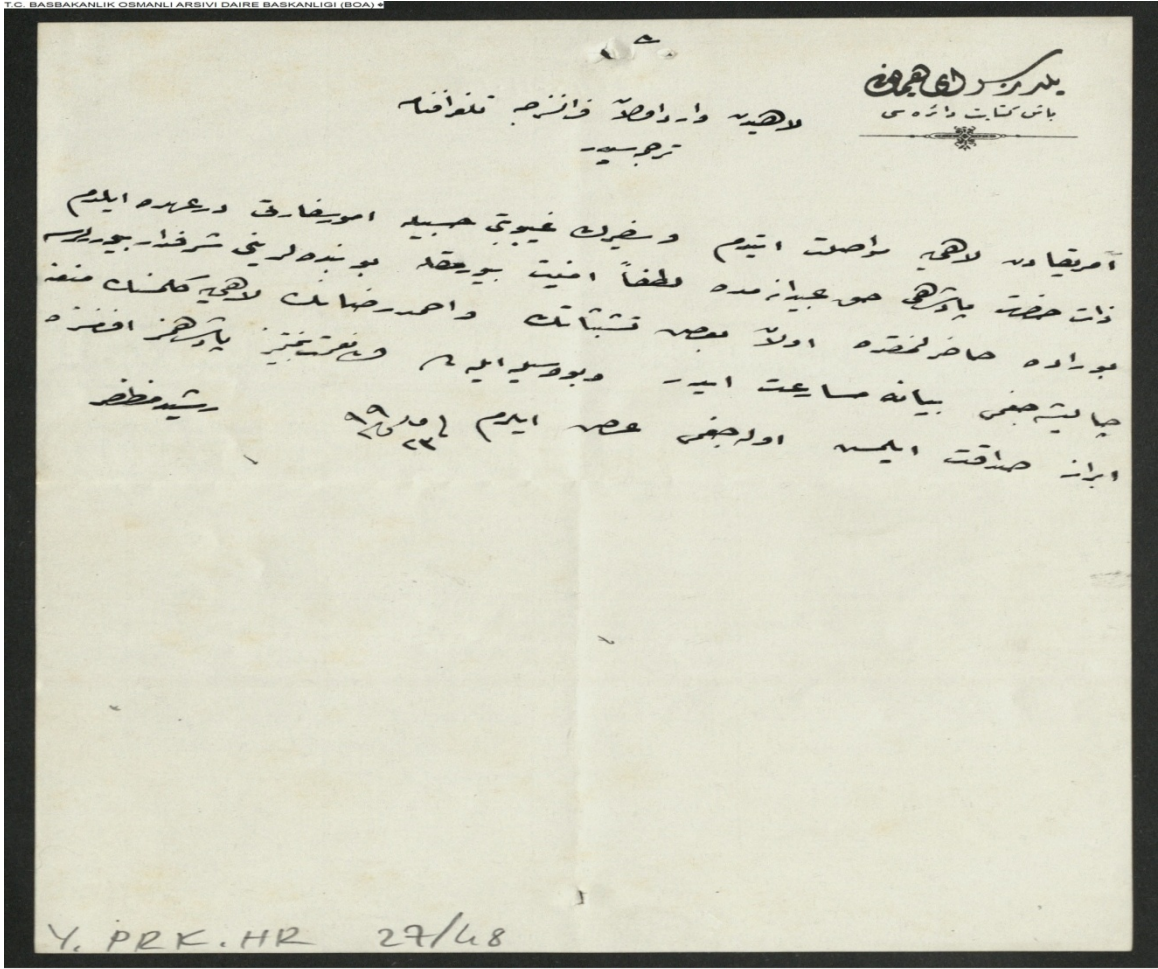 T.C. BASBAKANLIK OSMANLI ARSIVI DAIRE BASKANLIGI (BOA)
يلديز سراى همايونى
باش كتابت دائره سى
لاهيدن وارد اولان فرانسزجه تلغرافنامه
ترجمه سيدر
آمريقادن لاهيه مواصلت ايتدم وسفيرك غيبوبتى حسبيله امور سفارتى درعهده ايلدم
ذات حضرت پادشاهى حق عبيدانه مده لطفاً امنيت بيورمقله بو بنده لرينى شرفدار بيوررلرسه
بوراده حاضرلنمقده اولان بعض تشبثاتك واحمد رضانك لاهيه كلمسنك منعنه
چاليشه جغمى بيانه مسارعت ايدر وبو وسيله ايله ولى نعمت پادشاهمز افندمزه
ابراز صداقت ايلمش اوله جغمى عرض ايلرم فى ٢٣ مايس ٩٩ رشيد مظفر
Y. PRK. HR 27/48